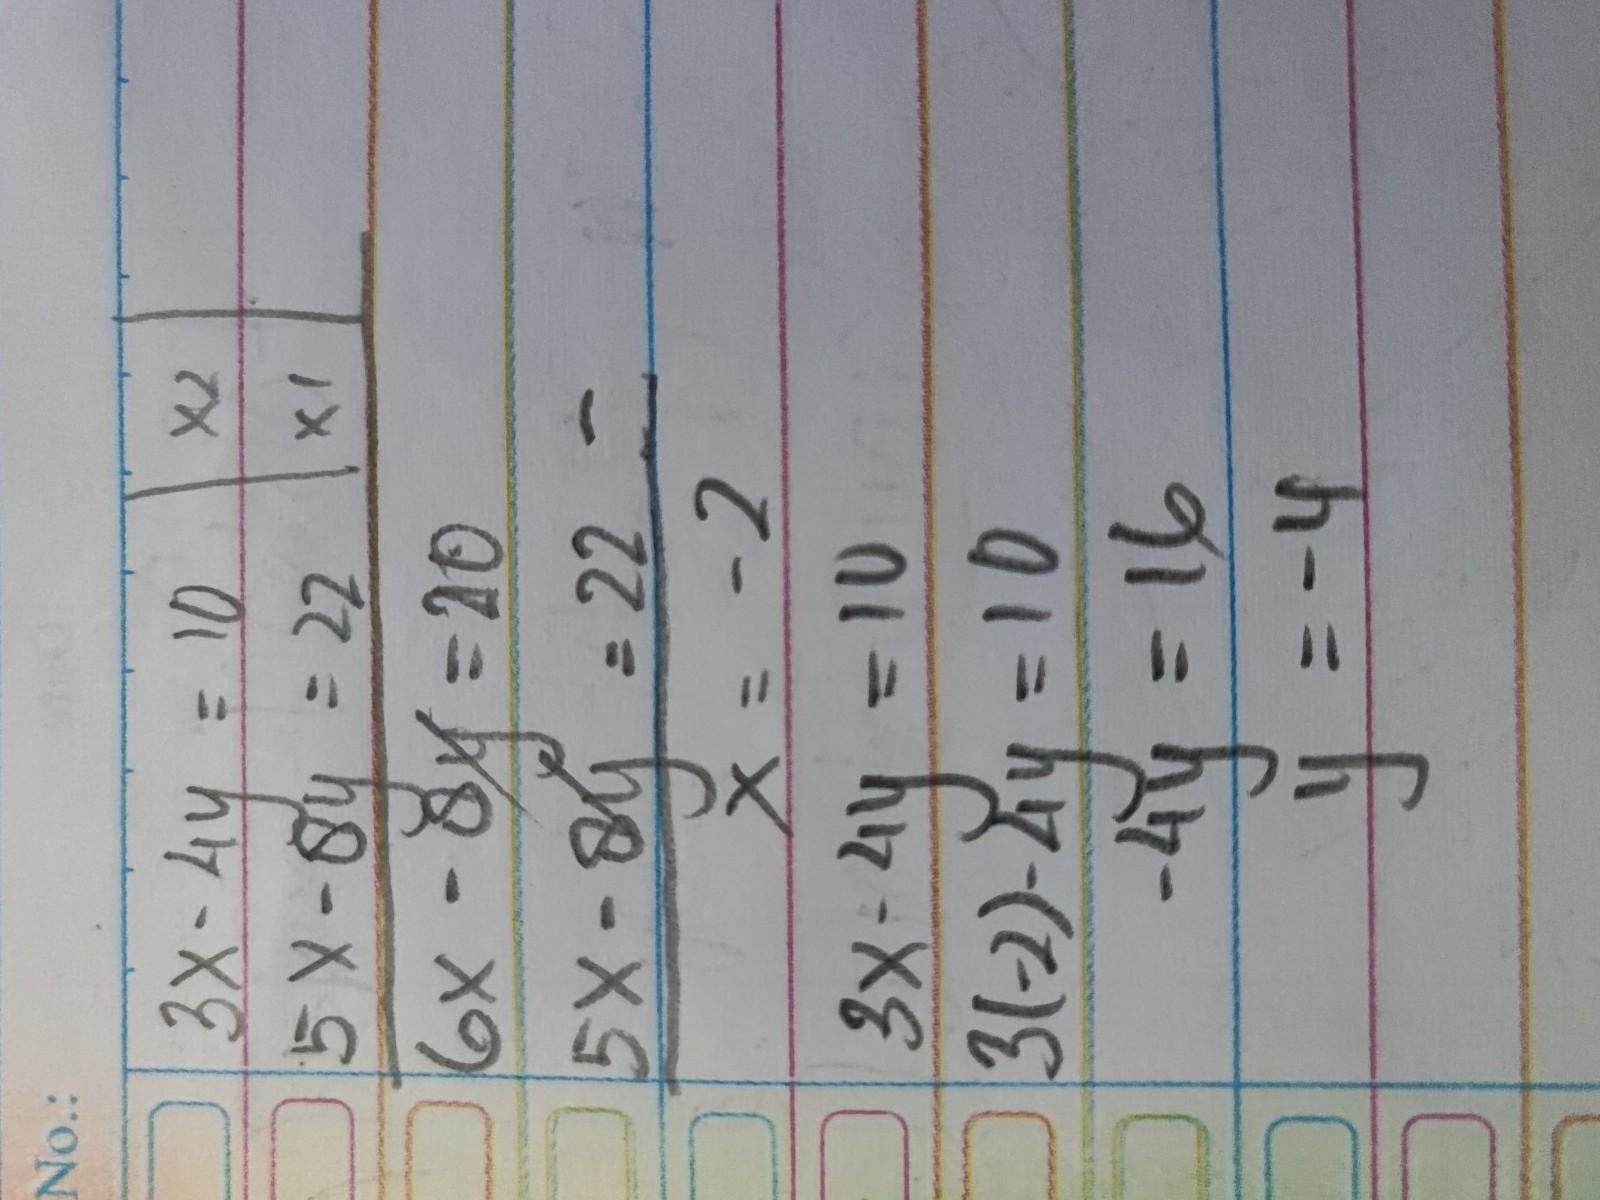 No.:
3x - 4y = 10 | x2 |
5x - 8y = 22 | x1 |
6x - 8y = 20
5x - 8y = 22 -
x = -2
3x - 4y = 10
3(-2) - 4y = 10
-4y = 16
y = -4